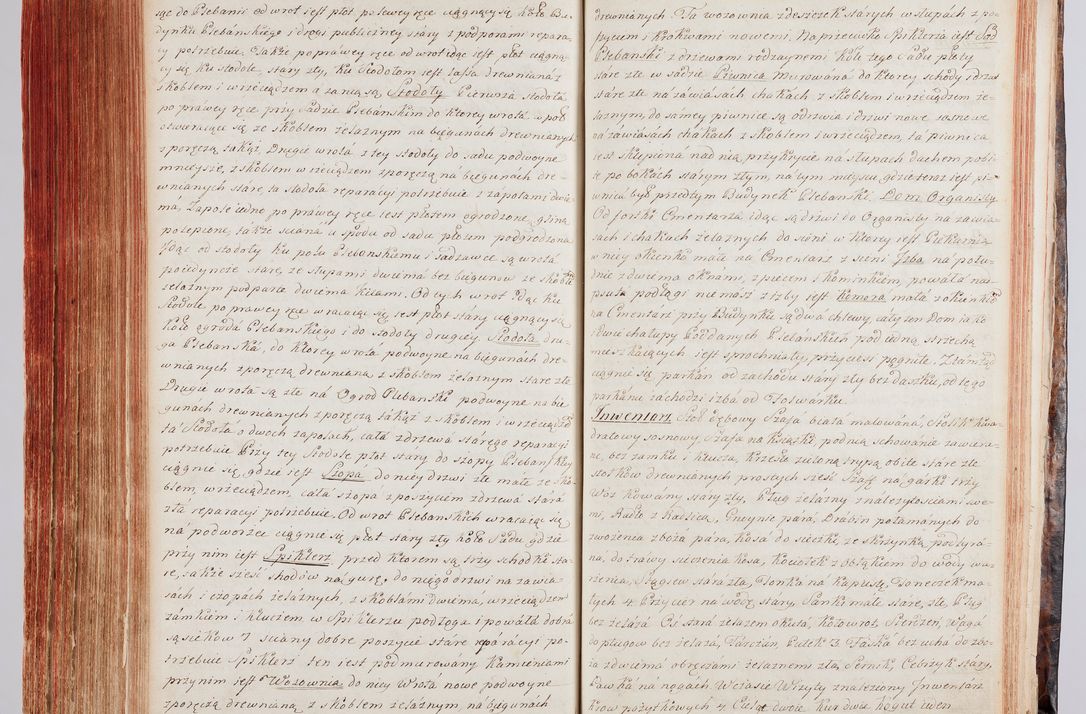 sąc do Plebanii od wrot jest płot po lewey ręce ciągnący się koło Bu-
dynku Plebanskiego i drogi publiczney stary z podporami repara-
cyi potrzebuie. Także po prawey ręce od wrot idąc jest płot ciągną-
cy się ku stodole, stary zły, ku stodołom jest
skoblem i wrzeciądzem a za nią są Stodoły. Pierwsza stodoła
po prawey ręce przy sadzie Plebánskim do ktorey wrotá w poł
otwieraiące się ze skoblem żelaznym na biegunach drewnianych
z poręczą takąż. Drugie wrotá z tey stodoły do sadu podwoyne
mnieysze, z skoblem wrzeciądzem z poręczą na biegunach dre-
wnianych stare, ta stodoła reparacyi potrzebuie z zapolami dwie-
má, Zapole iedne po prawey ręce iest płotem ogrodzone, gliną
polepione, także sciana u spodu od sadu płozem podgrodzona
Idąc od stodoły ku polu Plebanskiemu i sadzawce są wrotá
poiedyncze stare, ze słupami dwiemá bez bieguow ze skoblem
żelaznym podparte dwiema kiiami. Od tych wrot idąc ku
stodole po prawey ręce wracaiąc się iest płot stary ciągnący się
koło ogroda Plebanskiego i do stodoły drugiey Stodoła dru-
ga Plebanská, do ktorey wrotá podwoyne na biegunach dre-
wnianych z poręczą drewnianą z skoblem żelaznym stare złe
Drugie wrotá są złe na Ogrod Plebanski podwoyne na bie-
gunach drewnianych z poręczą takąż z skoblem i wrzeciądzem
ta stodoła o dwoch zapolach, cała z drzewa starego reparacyi
potrzebuie Przy tey stodole płot stary do szopy Plebanskiey
ciągnie się, gdzie jest Szopá do niey drzwi złe małe ze sko-
blem, wrzeciądzem, cała szopa z poszyciem z drzewa stará
zła reparacyi potrzebuie. Od wrot Plebanskich wracaiąc się
ná podworze ciągnie się płot stary zły koło sadu, gdzie
przy nim iest Spiklerz przed ktorem są trzy schodki sta-
re, także szesć shodow ná gurę, do niego drzwi na zawia-
sach i czopach żelaznych, z skoblámi dwiemá, wrzeciądzem
zámkiem i kluczem w Spiklerzu podłoga i powáłá dobrá
są sieków 7 sciany dobre poszycie stáre reparacyi po-
trzebuie Spiklerz ten iest podmurowany kamieniami
przy nim iest Wozownia do niey Wrotá nowe podwoyne
z poręczą drewnianą z skoblem żelaznym na biegunach
drewnianych. Ta wozownia z deszczek starych w słupach z po-
szyciem i krokwami nowemi. Naprzeciwko Spiklerza iest Sad
Plebanski z drzewami rodzaynemi kołe tego sadu płoty
stare złe w sadzie Piwnica murowána do ktorey schody i drzwi
stáre złe ná záwiasách, chakách, z skoblem i wrzeciądzem że-
láznym, do sámey piwnice są odrzwia i drzwi nowe sosnowe
ná záwiásách chakach z skoblem i wrzeciądzem, ta piwnica
iest sklepiona nad nią przykrycie ná słupach Dachem pobi-
te po bokach starym złym, na tym mieyscu, gdzie teraz iest pi-
wnicá był przedtym Budynek Plebanski. Dom Organisty.
Od fortki Cmentarza idąc są drzwi do Organisty na záwia-
sách i chakach żelaznych do sieni w ktorey iest Piekarnia
w niey okienko małe ná Cmentarz z sieni Izba na połu-
dnie z dwiema oknámi, z piecem i kominkiem, powáłá ze-
psuta podłogi nie mász z izby iest Komora mała z okienkiem
na Cmentarz przy Budynku są dwa chlewy, cały ten Dom iako
i dwie chałupy Poddanych Plebánskich pod iedną strzechą
mieszkaiących iest sprochniały, przyciesi pogniłe. Ztámtąd
ciągnie się parkán od zachodu stáry zły bez daszku, od tego
parkanu zachodzi izba od Folwarku.
Inwentarz Stoł dębowy Szafa biała malowana, Stolik kwa-
dratowy sosnowy, Szafa na książki, pod nią schowanie zawiera-
ne, bez zamku i klucza, krzesło zieloną trypą obite stáre złe
stołkow drewnianych prostych szesć Szaff na gárki trzy
Woz kowány stáry zły, Pług żelazny z należytosciami swe-
mi, Radło z Radlicą, Gnoynic pára, Drábin połamánych do
zwożenia zboża pára, Kosa do sieczki ze skrzynką podstyra-
ná, do trawy sieczenia kosa, Kociołek z obłąkiem do wody wa-
rzenia, Ságiew stará zła, Fonka na Kapustę, Foneczek ma-
łych 4. Przycier ná wodę stáry, Sanki małe stáre, złe, Pług
bez żelázá. Oś stara żelazem okuta, kołowrot, Sierdzen, wága
do pługow bez żelaza, Tarczán, Putek 3. Faska bez wika do zbo-
ża z dwiemá obręczámi żelaznemi złá, Sernik, Cebrzyk stáry
Ławka ná nogách. W czasie Wizyty znaleziony Inwentarz
Krow pożytkowych 4. Cieląt dwoie Kur dwie kogut ieden